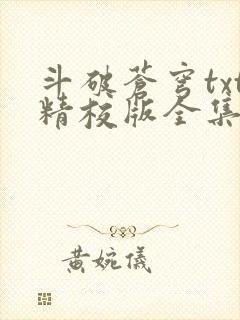 斗破蒼穹txt
精校版全集
黄婉儀